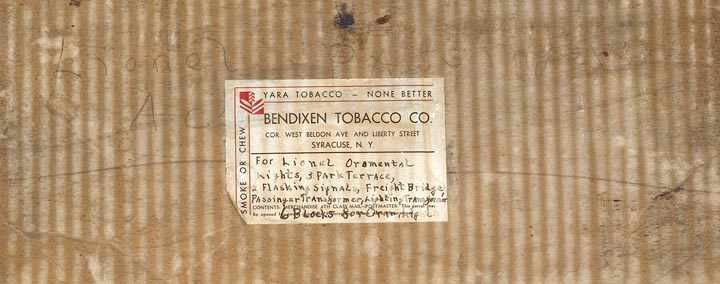 Lionel
YARA TOBACCO – NONE BETTER
BENDIXEN TOBACCO CO.
COR. WEST BELDON AVE AND LIBERTY STREET
SYRACUSE, N. Y.
SMOKE OR CHEW
For Lionel Oramental
Lights, 3 Park Terrace,
2 Flashing Signals, Freight Bridge,
Passinger Transformer, Lighting Transformer
CONTENTS: MERCHANDISE 4TH CLASS MAIL—POSTMASTER: This parcel may
be opened
6 Blocks for Oram